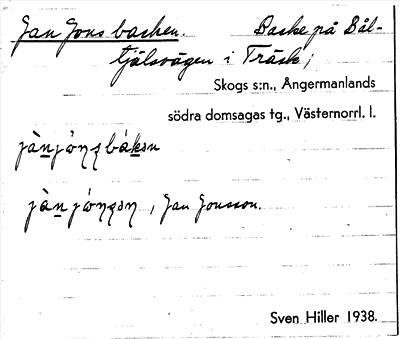 Jan Jons backen. Backe på Bål-
tjälsvägen i Träsk;
Skogs s:n., Ångermanlands
södra domsagas tg., Västernorrl. l.
Jan Jonsson.
Sven Hiller 1938.